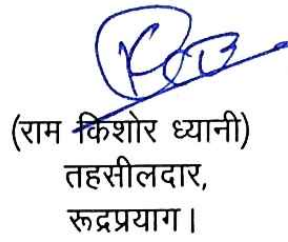 (राम किशोर ध्यानी)
तहसीलदार,
रूद्रप्रयाग।